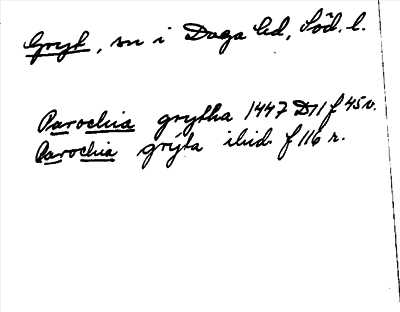 Gryt, sn i Daga hd, Söd. l.
Parochia grytha 1447 D11 f 45 v.
Parochia gryta ibid. f 116 r.